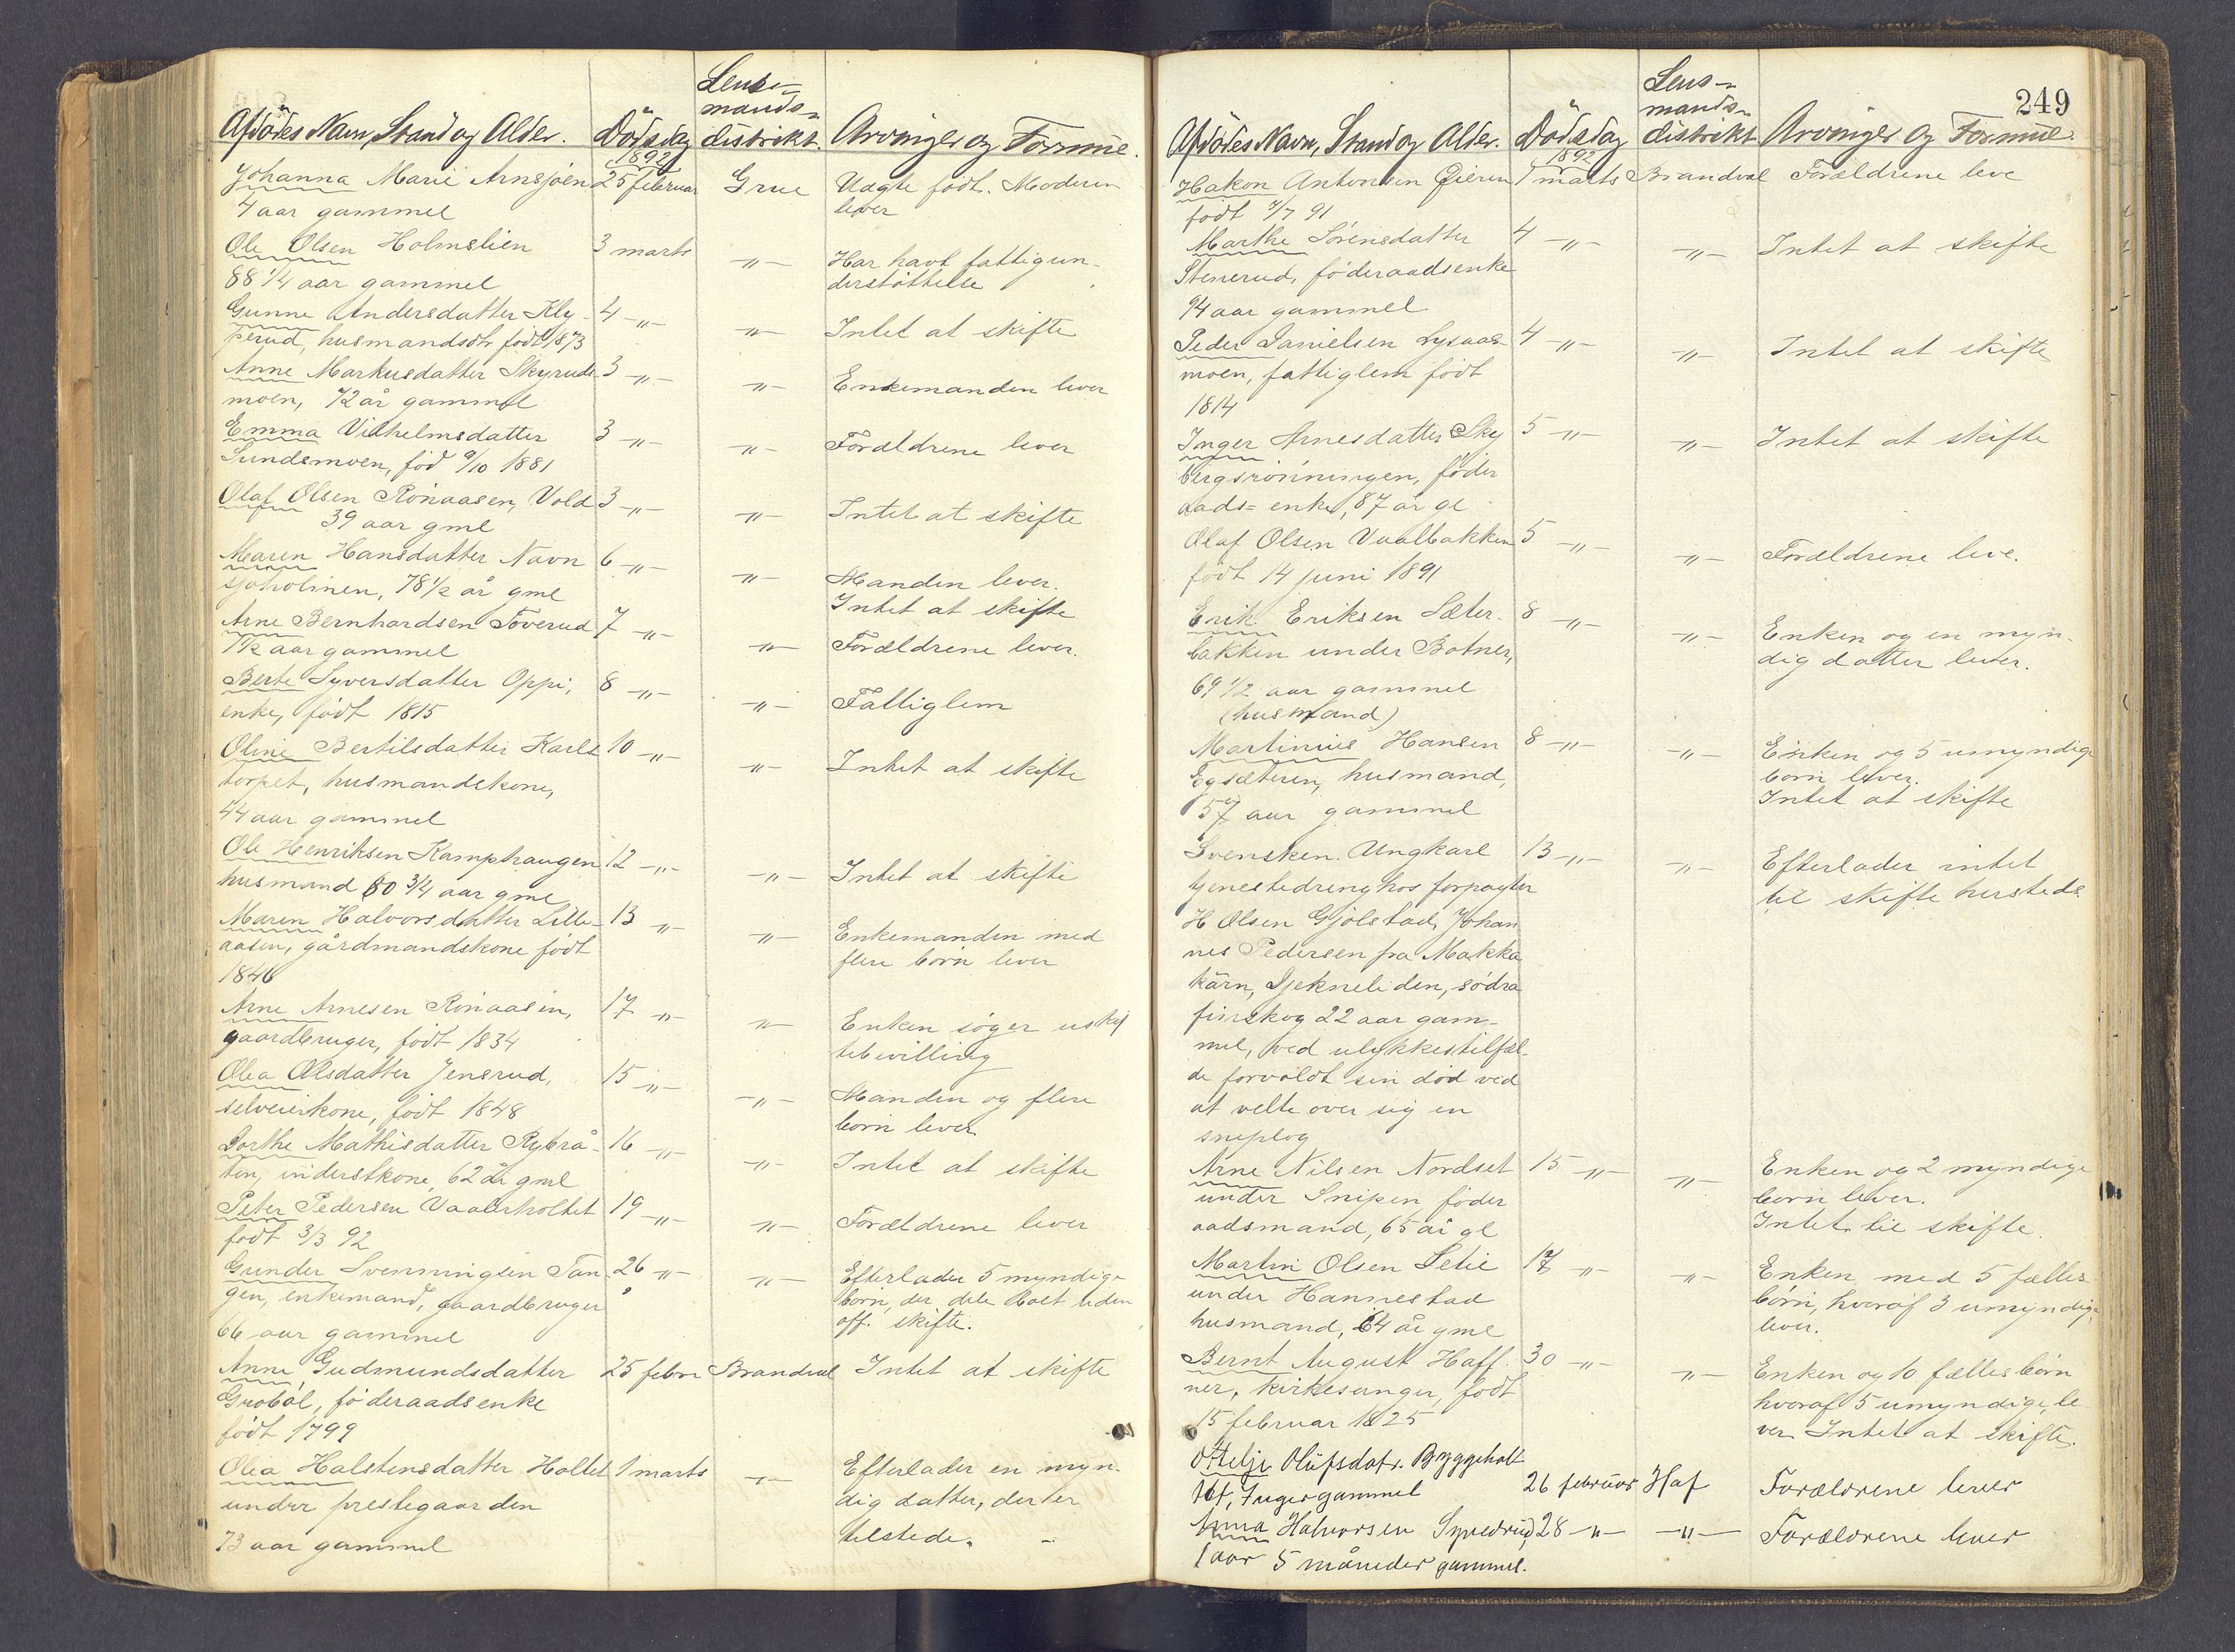 Lens-
mands-
Afdödes Navn, Stand og Alder. Dödsdag distrikt. Arvinger og Formue.
1892
Johanna Marie Arnsjøen 25 februar Grue Uægte født. Moderen
4 aar gammel lever
Ole Olsen Holmslien 3 marts -"- Har havt fattigun-
88 1/4 aar gammel derstøttelse
Gunne Andersdatter Kly- 4 -"- -"- Intet at skifte
perud, husmandsdtr født 1873
Anne Markusdatter Skyruds- 3 -"- -"- Enkemanden lever
moen, 72 år gammel
Emma Vilhelmsdatter 3 -"- -"- Forældrene lever
Sundsmoen, fød 9/10 1881
Olaf Olsen Rönaasen, Vold 3 -"- -"- Intet at skifte
39 aar gml
Maren Hansdatter Navn 6 -"- -"- Manden lever.
sjøholmen, 78 1/2 år gml Intet at skifte
Arne Bernhardsen Toverud 7 -"- -"- Forældrene lever.
1 1/2 aar gammel
Berte Syversdatter Oppi, 8 -"- -"- Fattiglem
enke, født 1815
Oline Bertilsdatter Karls 10 -"- -"- Intet at skifte
torpet, husmandskone,
44 aar gammel
Ole Henriksen Kamphaugen 12 -"- -"- Intet at skifte
husmand 80 3/4 aar gml
Maren Halvorsdatter Lille- 13 -"- -"- Enkemanden med
aasen, gårdmandskone født flere börn lever
1846
Arne Arnesen Rönaasen, 17 -"- -"- Enken søger uskif
gaardbruger, født 1834 tebevilling
Olea Olsdatter Jensrud, 15 -"- -"- Manden og flere
selveierkone, født 1848 börn lever
Dorthe Mathisdatter Rybrå- 16 -"- -"- Intet at skifte
ten, inderstkone, 62 år gml
Peter Pedersen Vaalerholtet 19 -"- -"- Forældrene lever
født 3/3 92
Gunder Svenningsen Tan- 26 -"- -"- Efterlader 5 myndige
gen, enkemand, gaardbruger börn, der dele boet uden
66 aar gammel off. skifte.
Anne Gudmundsdatter 25 febru Brandval Intet at skifte
Grøbøl, föderaadsenke
født 1799
Olia Halstensdatter Holtet 1 marts -"- Efterlader en myn-
under prestegaarden dig datter, der er
73 aar gammel tilstede.
249
Lens-
mands-
Afdödes Navn, Stand og Alder. Dödsdag distrikt Arvinger og Formue.
1892
Hakon Antonsen Øieren 1 marts Brandval Forældrene leve
født 7/7 91
Marthe Sørensdatter 4 -"- -"- Intet at skifte
Stenerud, föderaadsenke
94 aar gammel
Peder Danielsen Lysaas- 4 -"- -"- Intet at skifte
moen, fattiglem født
1814
Inger Arnesdatter Sky 5 -"- -"- Intet at skifte
bergsrönningen, föder
aads=enke, 87 år gl
Olaf Olsen Vaalbakken 5 -"- -"- Forældrene leve.
født 14 juni 1891
Erik Eriksen Sæter- 8 -"- -"- Enken og en myn-
bakken under Botner, dig datter lever.
69 1/2 aar gammel
(husmand)
Martinius Hansen 8 -"- -"- Enken og 5 umyndige
Egsæteren, husmand, börn lever.
57 aar gammel Intet at skifte
Svensken. Ungkarl 13 -"- -"- Efterlader intet
tjenestedreng hos forpagter til skifte hersteds
H Olsen Gjölstad, Johan
nes Pedersen fra Makka
kärn, södra
finskog 22 aar gam-
mel, ved ulykkestilfæl-
de forvoldt sin död ved
at velte over sig en
sneplog
Arne Nilsen Nordset 15 -"- -"- Enken og 2 myndige
under Snipen föder börn lever.
aadsmand, 65 år gl Intet til skifte.
Martin Olsen Setie 17 -"- -"- Enken med 5 fælles-
under Hannestad börn, hvoraf 3 umyndige,
husmand, 64 år gml lever.
Bernt August Haff- 30 -"- -"- Enken og 10 fællesbörn
ner, kirkesanger, født hvoraf 5 umyndige, le
15 februar 1825 ver Intet at skifte.
Ottelje Olufsdatr. Byggeholt
tet, gammel 26 februar Hof Forældrene lever
Anna Halvorsen 28 -"- -"- Forældrene lever
1 aar 5 måneder gammel.